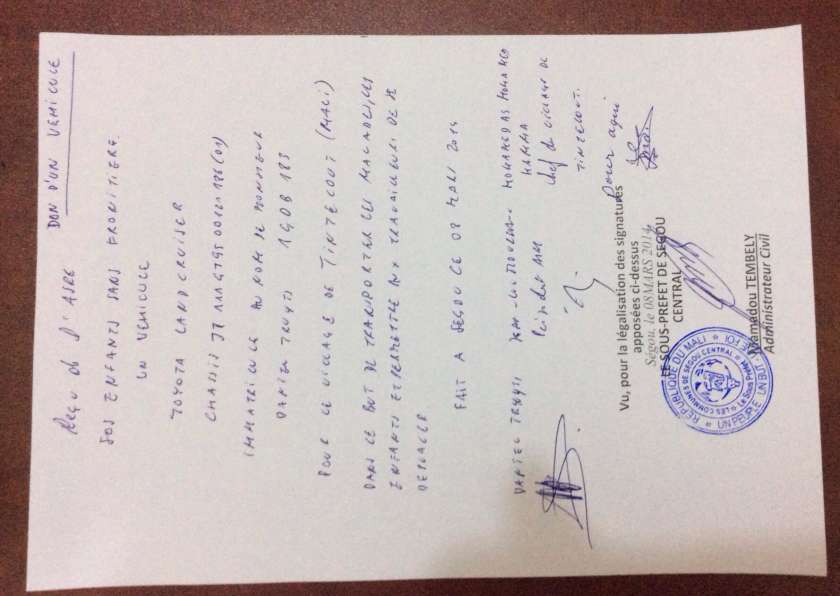 DON D'UN VEHICULE
Reçu de D'AIDE
SOS ENFANTS SANS FRONTIERE.
UN VEHICULE
TOYOTA LANDCRUISER
CHASSIS
IMMATRICULE AU NOM DE MONSIEUR
DANIEL TRUYTS 1GOB183
POUR LE VILLAGE DE TINTECOUT (MALI)
DANS LE BUT DE TRANSPORTER LES MALADES, LES
ENFANTS ET PERMETTRE AUX TRAVAILLEURS DE SE
DEPLACER
FAIT A SEGOU CE 08 MARS 2014
DANIEL TRUYTS
Président
MOHAMED AG MOHAMED
HAMMA
Chef de village de
TINTECOUT.
Vu, pour la légalisation des signatures
apposées ci-dessus
Ségou, le 08 MARS 2014
LE SOUS-PREFET DE SEGOU
CENTRAL
Mamadou TEMBELY
Administrateur Civil
REPUBLIQUE DU MALI
UN PEUPLE UN BUT UNE FOI
LES COMMUNES DE SEGOU CENTRAL
Le Sous Préfet